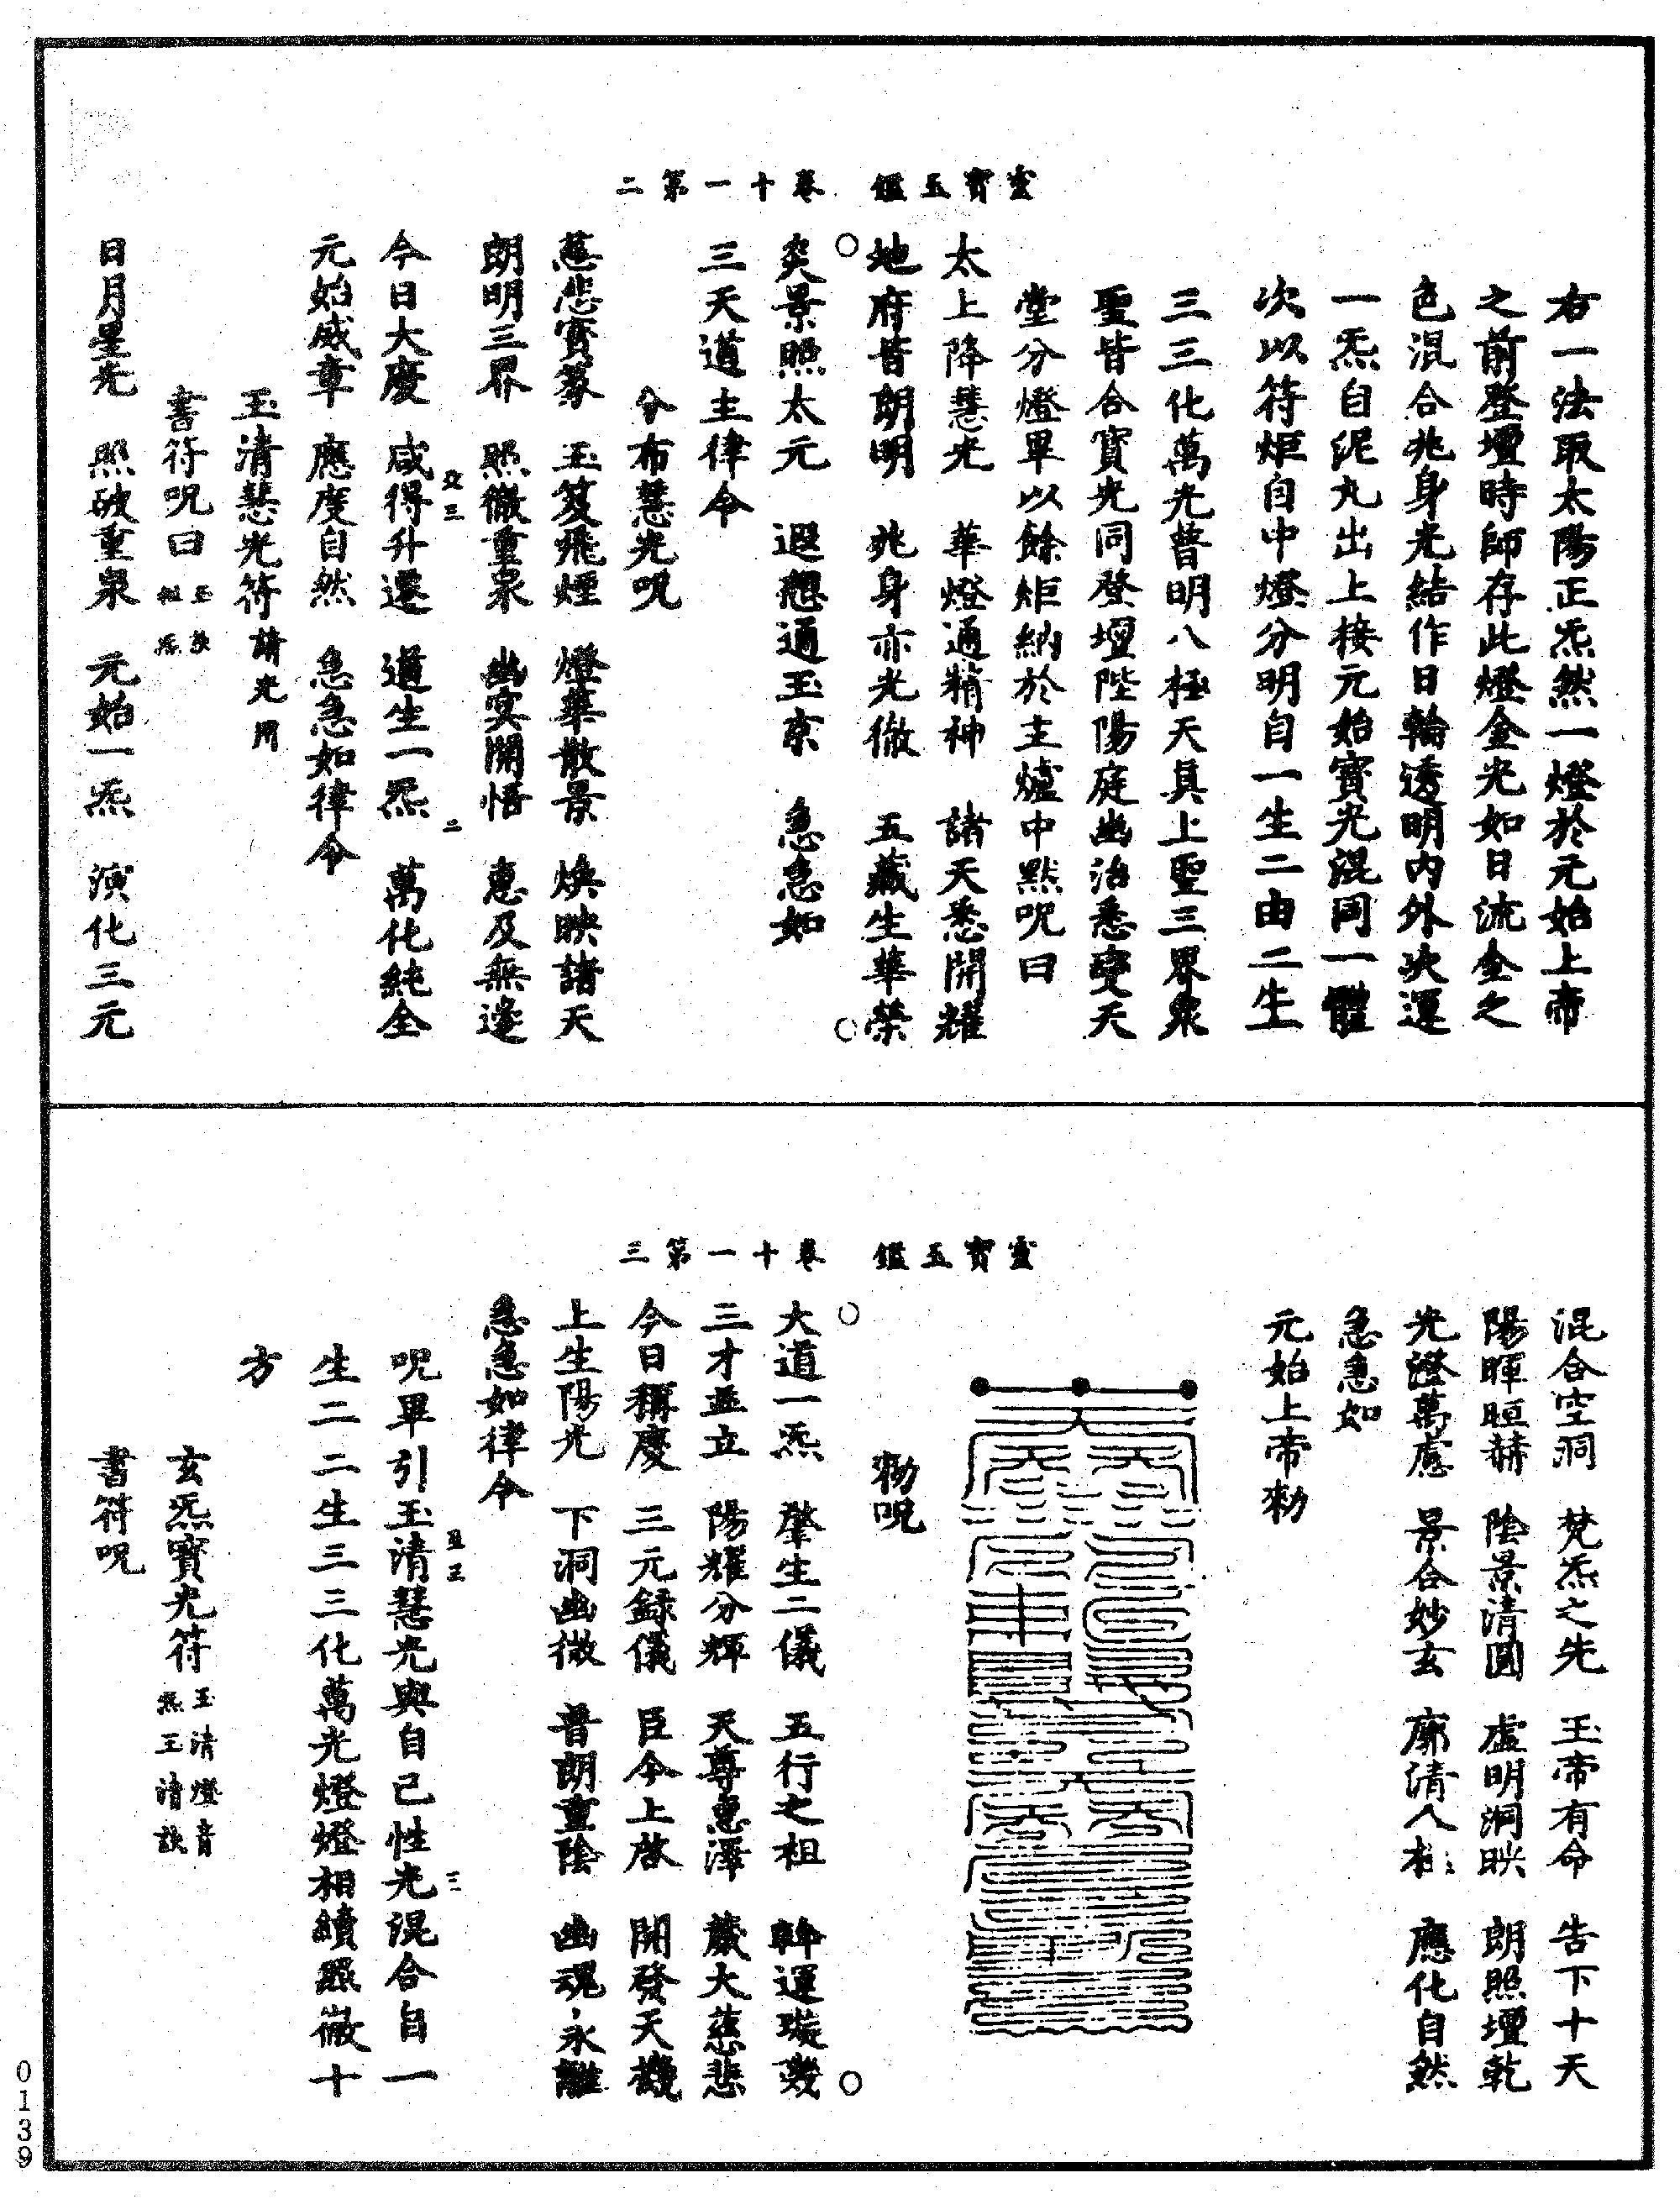 右一法取太陽正炁然一燈於元始上帝
之前登壇時師存此燈金光如日流金之
色混合兆身光結作日輪透明內外次運
一炁自泥丸出上接元始寶光混同一體
次以符炬自中燈分明自一生二由二生
三三化萬光普明八極天真上聖三界衆
聖皆合寶光同登壇陛陽庭幽治悉變天
堂分燈畢以餘炬納於主爐中默呪曰
太上降慧光　華燈通精神　諸天悉開耀
地府皆朗明　兆身亦光徹　五藏生華榮
靈寶玉鑑　卷十一第二
炎景照太元　遐想通玉京　急急如
三天道主律令
分布慧光呪
慈悲寶篆　玉笈飛煙　燈華散景　煥映諸天
朗明三界　照徹重泉　幽冥開悟　惠及無邊
交三　二
今日大慶　咸得升遷　道生一炁　萬化純全
元始威章　應度自然　急急如律令
玉清慧光符請光用
書符呪曰
日月星光　照破重泉　元始一炁　演化三元
混合空洞　梵炁之先　玉帝有命　告下十天
陽暉晅赫　陰景清圓　虛明洞映　朗照壇乾
光澄萬慮　景合妙玄　廓清八極　應化自然
急急如
元始上帝勑
勑呪
靈寶玉鑑　卷十一第三
大道一炁　肇生二儀　五行之祖　斡運璇璣
三才並立　陽耀分輝　天尊惠澤　嚴大慈悲
今日稱慶　三元錄儀　臣今上啓　開發天機
上生陽光　下洞幽微　普朗重陰　幽魂永離
急急如律令
三
呪畢引玉清慧光與自己性光混合自一
生二二生三三化萬光燈燈相續照徹十
方
玄炁寶光符玉清燈音
炁玉清訣
書符呪
0139